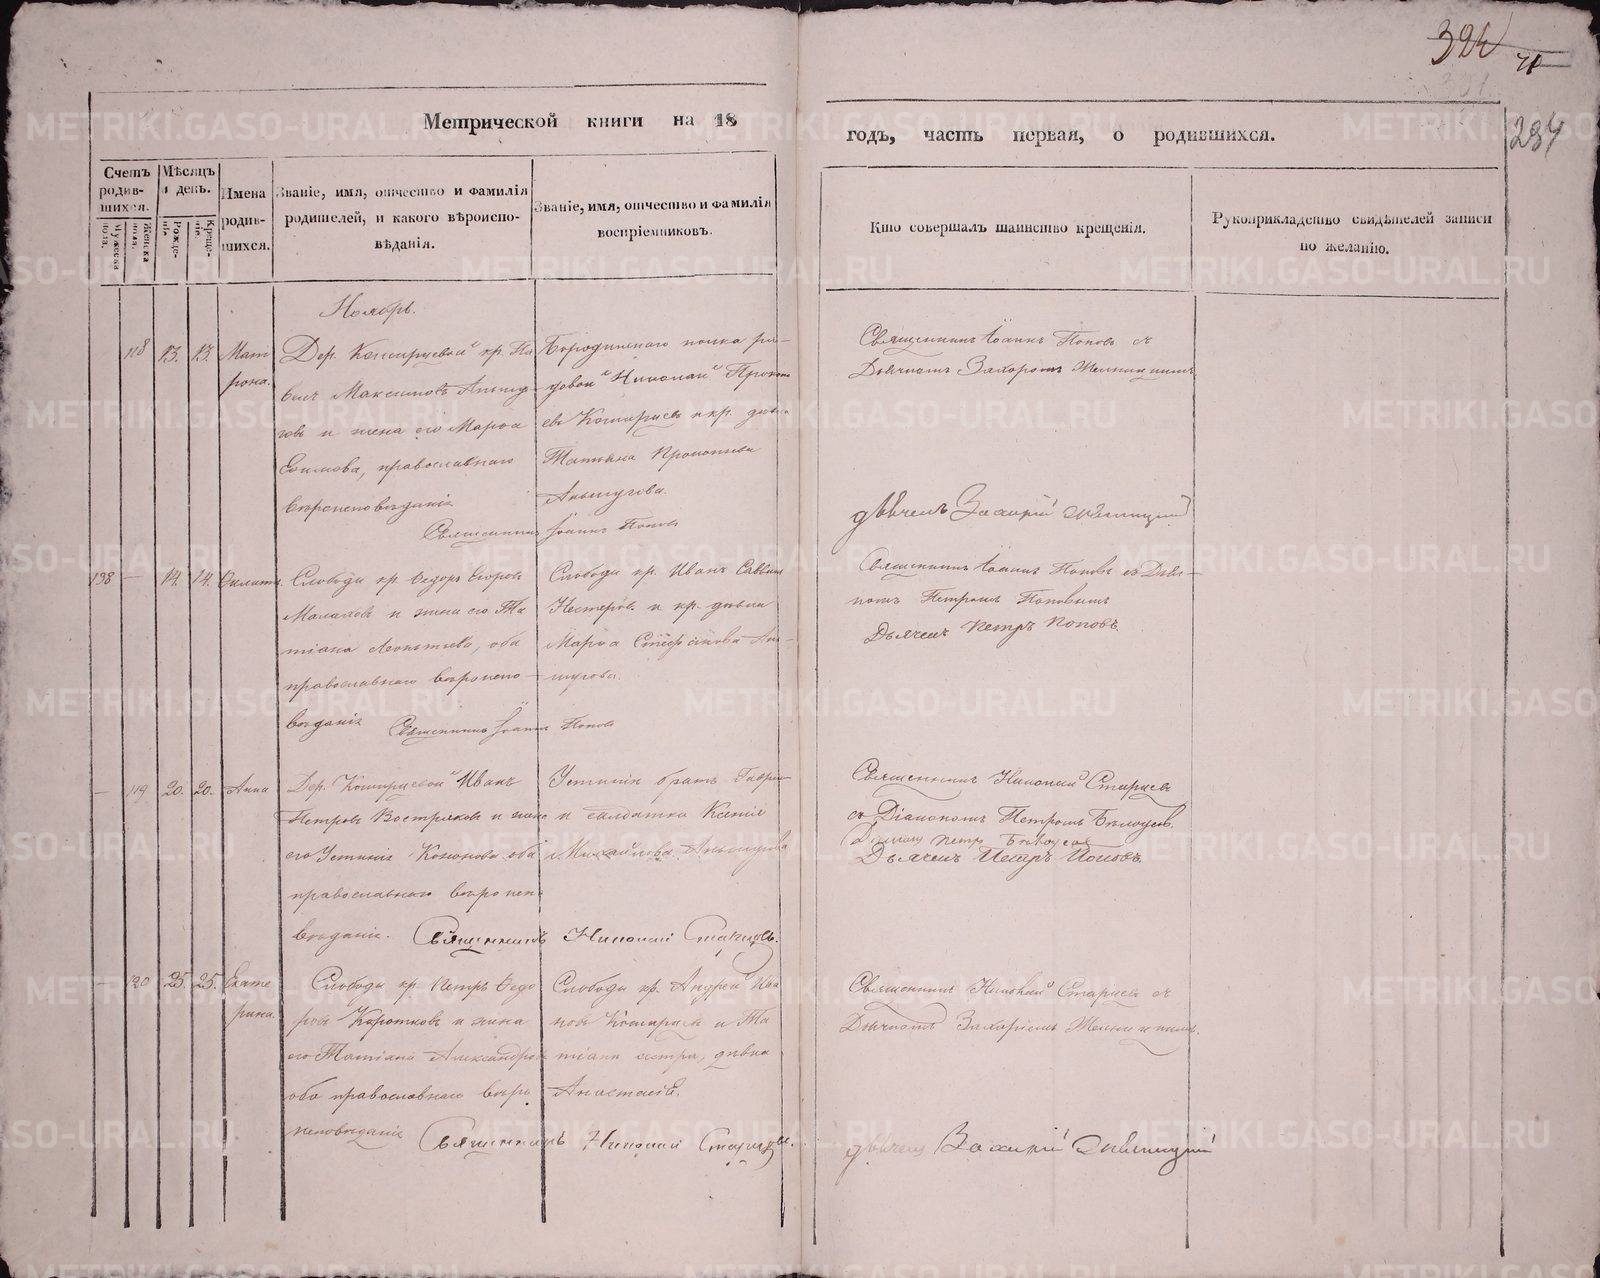 324
71
234
Метрической книги на 18
годъ, часть первая, о родившихся.
Счетъ родив-шихся.
Мужеска пола.
Женска пола.
Мѣсяцъ и день.
Рожде-нія.
Креще-нія.
Имена родив-шихся.
Званіе, имя, отчество и фамилія
родителей, и какого вѣроиспо-
вѣданія.
Званіе, имя, отчество и фамилія
воспріемниковъ.
Кто совершалъ таинство крещенія.
Рукоприкладство свидѣтелей записи
по желанію.
Ноябрь.
118 13. 13. Мат
рона.
Дер. кр. Па
велъ Максимовъ
и жена его Марѳа
Ефимова, православнаго
вѣроисповѣданія
Священникъ Іоаннъ Поповъ
Бородинскаго полка ря-
довой Николай Прокопь
евъ и кр. дѣвка
Татьяна Прокопьева
Священникъ Іоаннъ Поповъ съ
Дьячкомъ
дьячекъ Захарій
138 — 14. 14.
Слободы кр. Ѳедоръ Егоровъ
Малаховъ и жена его Та
тіана Леонтьева, оба
православнаго вѣроиспо-
вѣданія
Священникъ Іоаннъ Поповъ
Слободы кр. Иванъ Саввинъ
Нестеровъ и кр. дѣвка
Марѳа Стефанова
Священникъ Іоаннъ Поповъ съ Дьяч-
комъ Петромъ Поповымъ
Дьячекъ Петръ Поповъ
— 119 20. 20. Анна
Дер. Иванъ
Петровъ Востряковъ и жена
его Устинія Кононова оба
православнаго вѣроиспо-
вѣданія.
Священникъ Николай Старцевъ.
Устиніи братъ
и солдатка Ксенія
Михайлова
Священникъ Николай Старцевъ
съ Діакономъ Петромъ
Діаконъ Петръ
Дьячекъ Петръ Поповъ
— 120 25. 25. Екате
рина.
Слободы кр. Петръ Ѳедо
ровъ Коротковъ и жена
его Татіана Александрова
оба православнаго вѣро
исповѣданія
Священникъ Николай Старцевъ.
Слободы кр. Андрей Ива
новъ и Та
тіаны сестра, дѣвка
Анастасія.
Священникъ Николай Старцевъ съ
Дьячкомъ Захаріемъ
дьячекъ Захарій
METRIKI.GASO-URAL.RU